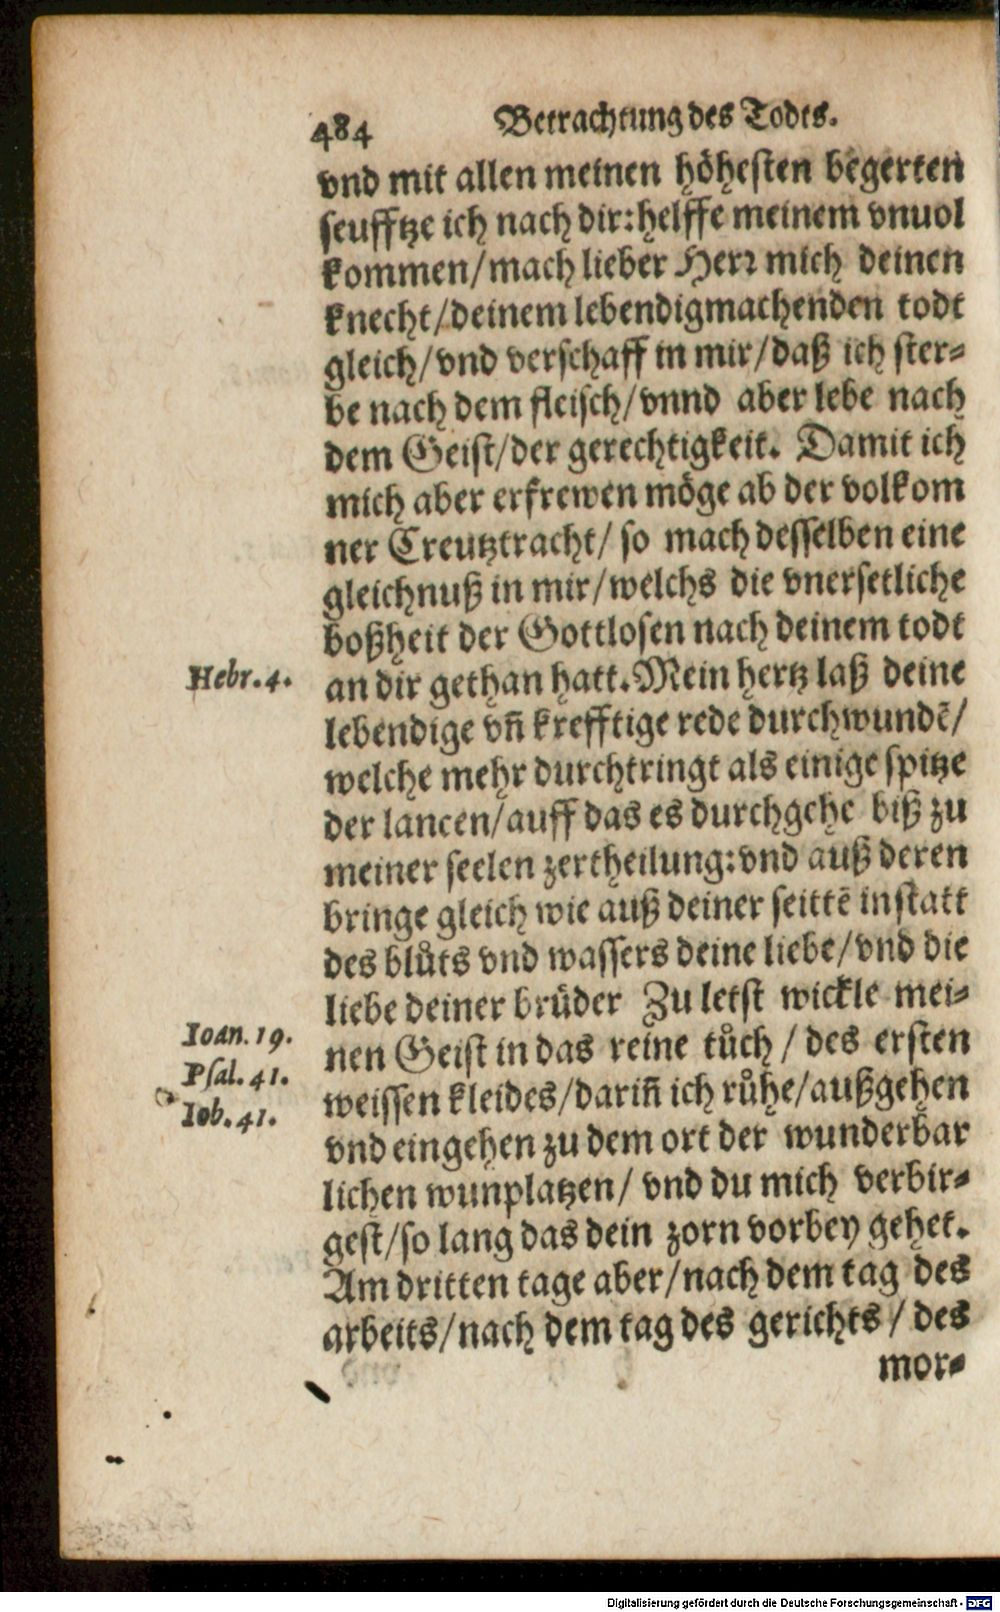 484 Betrachtung des Todts.
vnd mit allen meinen höhesten begerten
seufftze ich nach dir: helffe meinem vnuol
kommen/ mach lieber Herr mich deinen
knecht/ deinem lebendigmachenden todt
gleich/ vnd verschaff in mir/ daß ich ster-
be nach dem fleisch/ vnnd aber lebe nach
dem Geist/ der gerechtigkeit. Damit ich
mich aber erfrewen möge ab der volkom
ner Creutztracht/ so mach desselben eine
gleichnuß in mir/ welchs die vnersetliche
boßheit der Gottlosen nach deinem todt
Hebr. 4. an dir gethan hatt. Mein hertz laß deine
lebendige vñ krefftige rede durchwundẽ/
welche mehr durchtringt als einige spitze
der lancen/ auff das es durchgehe biß zu
meiner seelen zertheilung: vnd auß deren
bringe gleich wie auß deiner seittẽ instatt
des blůts vnd wassers deine liebe/ vnd die
liebe deiner brüder Zu letst wickle mei-
Ioan. 19. nen Geist in das reine tůch / des ersten
Psal. 41. weissen kleides/ dariñ ich růhe/ außgehen
Iob. 41. vnd eingehen zu dem ort der wunderbar
lichen wunplatzen/ vnd du mich verbir-
gest/ so lang das dein zorn vorbey gehet.
Am dritten tage aber/ nach dem tag des
arbeits/ nach dem tag des gerichts / des
mor-
Digitalisierung gefördert durch die Deutsche Forschungsgemeinschaft - DFG